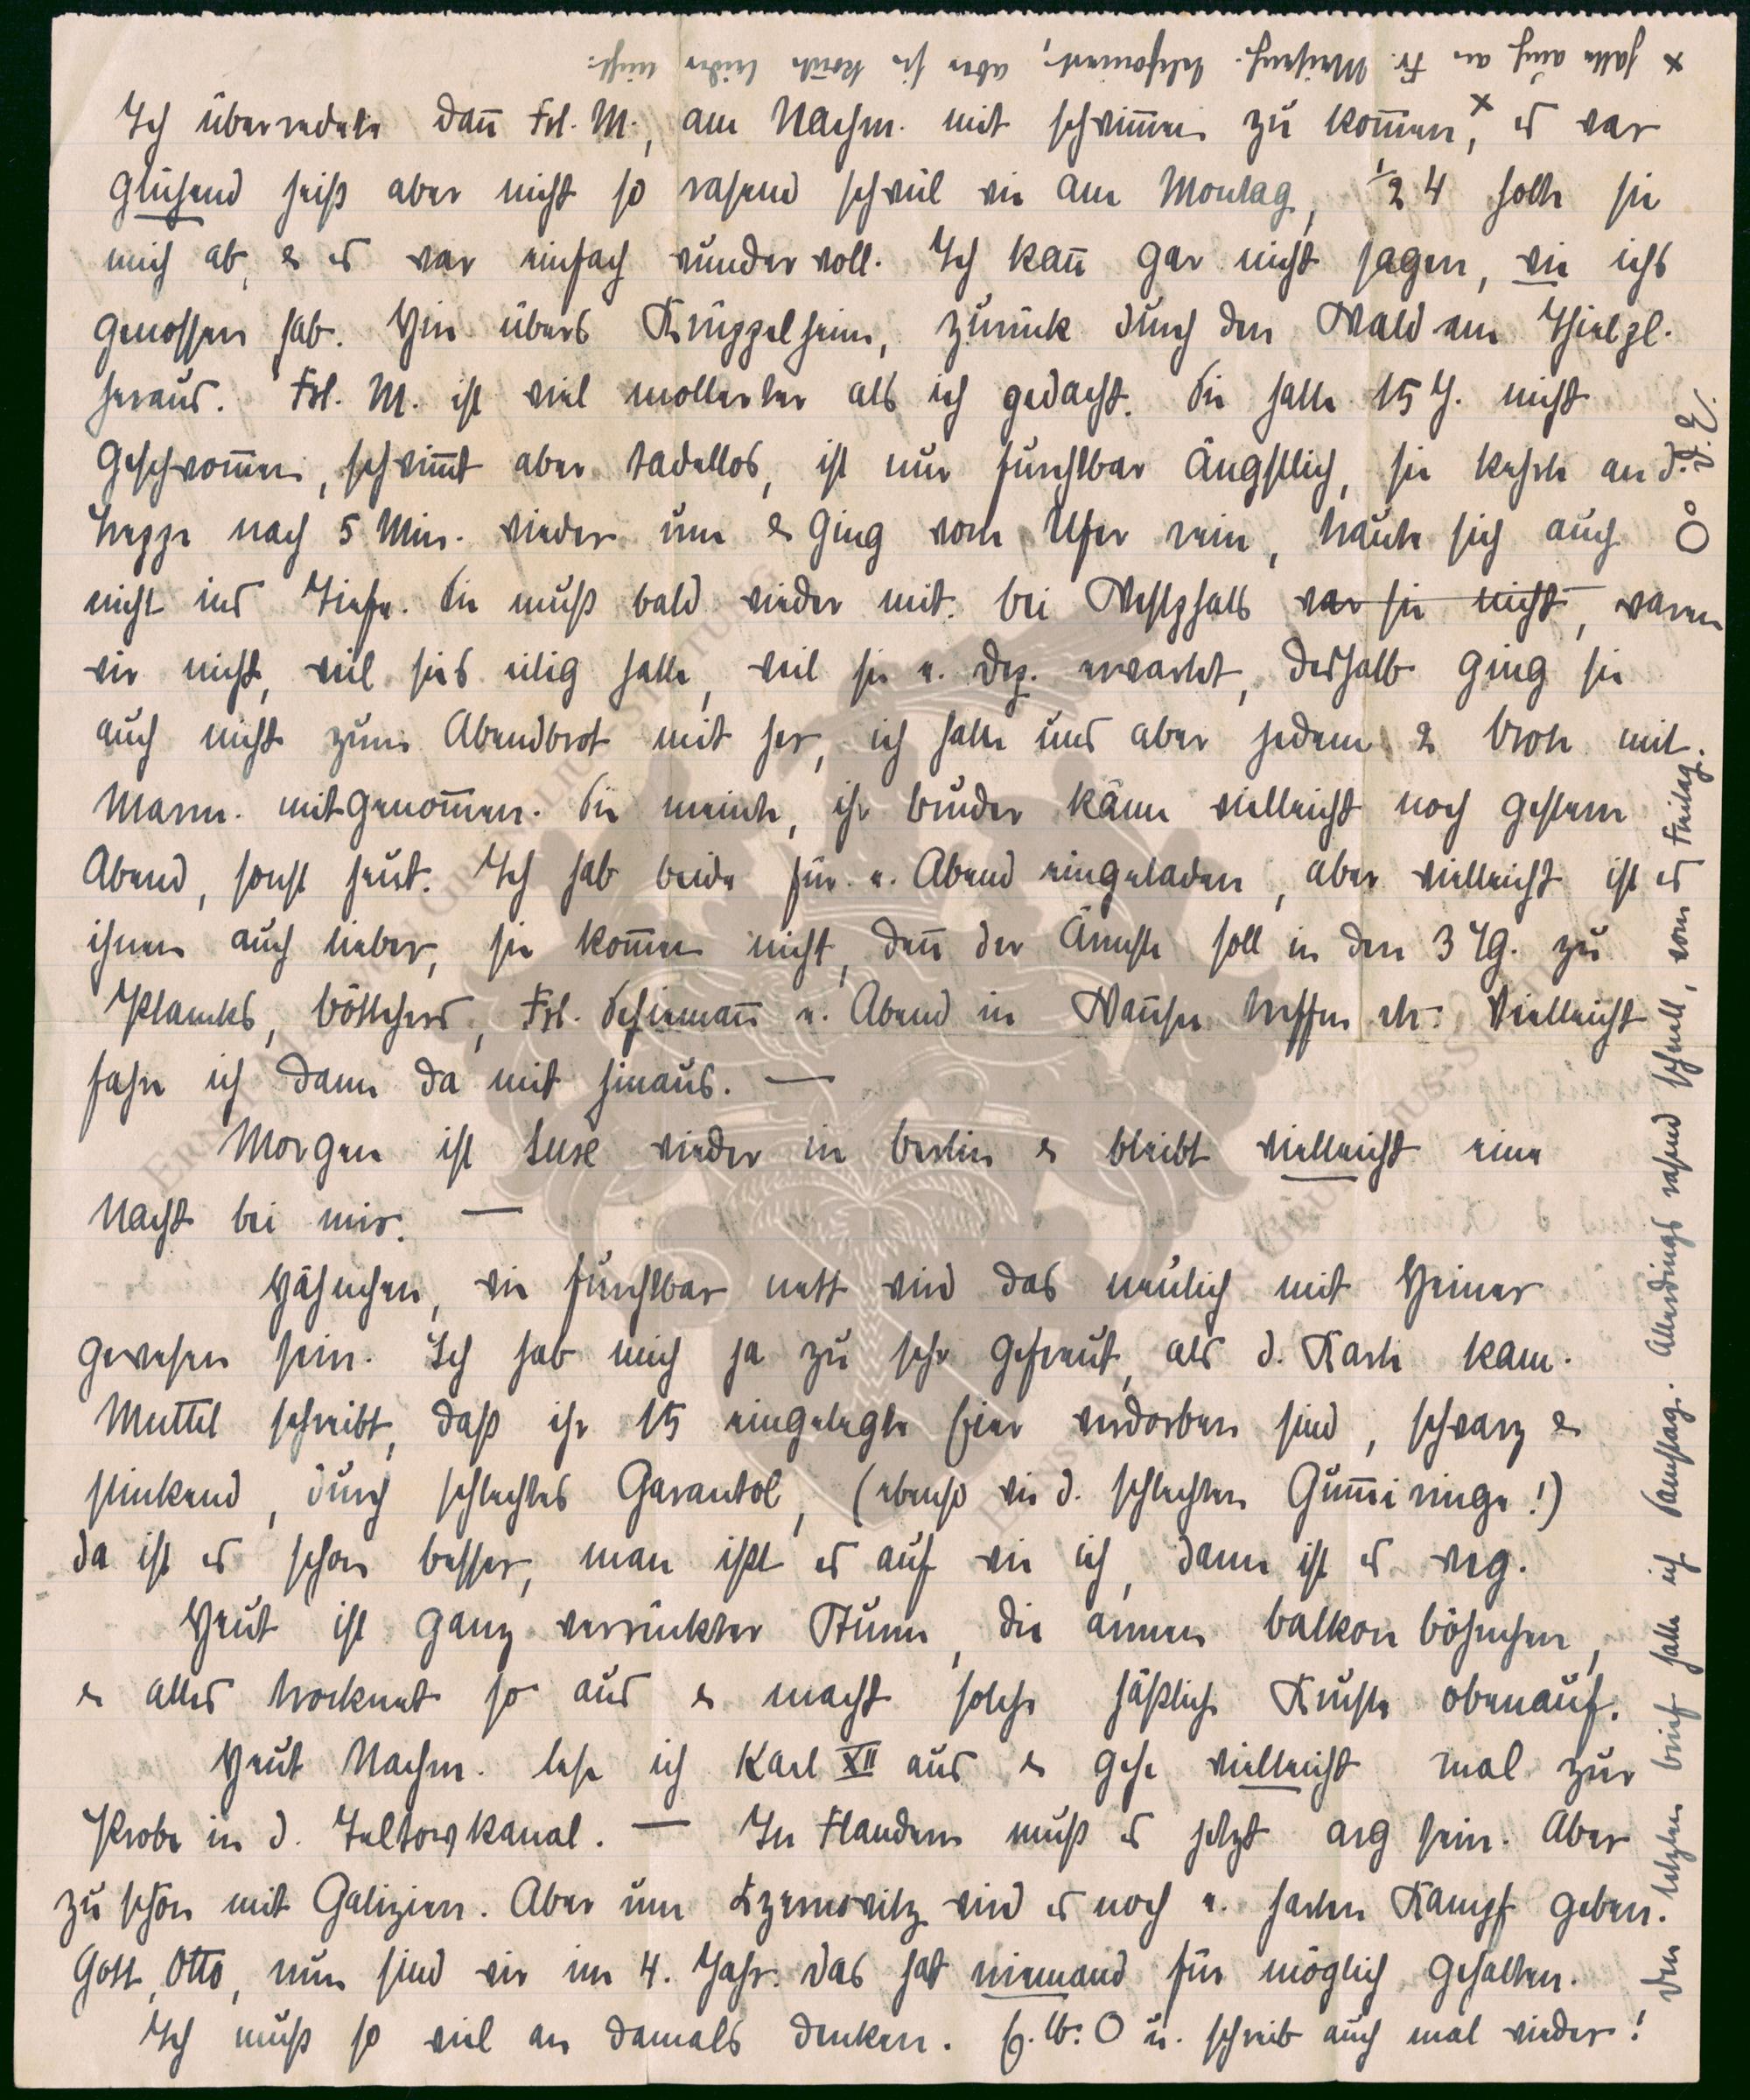 x hatte auch an Fr. Meisnest. telefoniert, aber sie konnte leider nicht.
Ich überredete dann Frl. M., am Nachm. mit schwimmen zu kommen,x es war
glühend heiß aber nicht so rasend schwül wie am Montag, 1/2 4 holte sie
mich ab, & es war einfach wundervoll. Ich kann gar nicht sagen, wie ichs
genossen hab. Hin übers Krüppelheim, zurück durch den Wald am Thielpl.
heraus. Frl. M. ist viel mollerter als ich gedacht. Sie hatte 15 J. nicht
geschwommen, schwimmt aber tadellos, ist nur furchtbar ängstlich, sie kehrte an d.
Treppe nach 5 Min. wieder um & ging vom Ufer rein, traute sich auch
nicht ins Tiefe. Sie muß bald wieder mit. Bei Westphals war sie nicht, waren
wir nicht, weil sies eilig hatte, weil sie e. Dep. erwartet, deshalb ging sie
auch nicht zum Abendbrot mit her, ich hatte uns aber jedem 2 Brote mit
Marm. mitgenommen. Sie meinte, ihr Bruder käme vielleicht noch gestern
Abend, sonst heut. Ich hab beide für e. Abend eingeladen, aber vielleicht ist es
ihnen auch lieber, sie kommen nicht, denn der Ärmste soll in den 3 Tg. zu
Plancks, Böttchers, Frl. Schiemann e. Abend in Wannsee treffen etc. Vielleicht
fahr ich dann da mit hinaus. —
Morgen ist Suse wieder in Berlin & bleibt vielleicht eine
Nacht bei mir. —
Hähnchen, wie furchtbar nett wird das neulich mit Heiner
gewesen sein. Ich hab mich ja zu sehr gefreut, als d. Karte kam.
Muttel schreibt, daß ihr 15 eingelegte Eier verdorben sind, schwarz &
stinkend, durch schlechtes Garantol, (ebenso wie d. schlechten Gummiringe!)
da ist es schon besser, man ißt es auf wie ich, dann ist es weg.
Heut ist ganz verrückter Sturm, die armen Balkonböhnchen,
& alles trocknet so aus & macht solche häßliche Kruste obenauf.
Heut Nachm. lese ich Karl XII aus & gehe vielleicht mal zur
Probe in d. Teltowkanal. — In Flandern muß es jetzt arg sein. Aber
zu schön mit Galizien. Aber um Czernowitz wird es noch e. harten Kampf geben.
Gott, Otto, nun sind wir im 4. Jahr. Das hat niemand für möglich gehalten.
Ich muß so viel an damals denken. G. lb. O u. schreib auch mal wieder!
Den letzten Brief hatte ich Samstag. Allerdings rasend schnell, vom Freitag.
O° D. E.